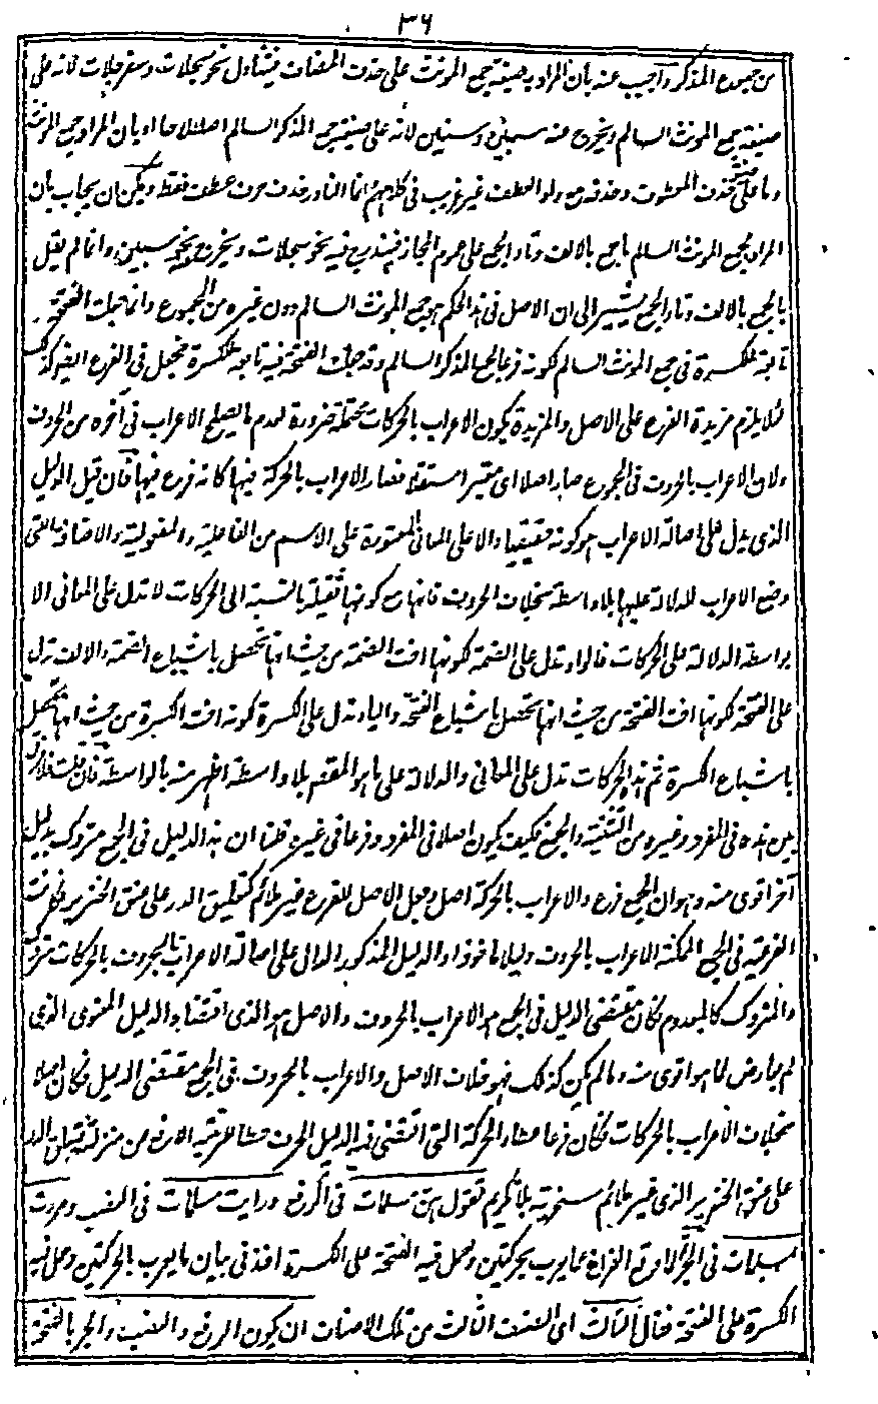 ٣٦
من جموع المذكر واجيب عنه بأن المراد به صيغة جمع المونث على حذف المضاف فيتناول نحو سجلات وسفرجلات لانه على
صيغة جمع المونث السالم ويخرج عنه سبين وسنين لأنه على صيغة جمع المذكر السالم اصطلاحا او بان المراد جمع المونث
وما على صيغته فحذف المعطوف وحذفه مع واو العطف غير غريب في كلامهم انما النادر حذف حرف عطف فقط ويمكن ان يجاب بان
المراد بجمع المونث السالم ما جمع بالالف وتاء الجمع على عموم المجاز فيندرج فيه نحو سجلات ويخرج نحو سبين وانما لم يقل
بالجمع بالالف وتاء الجمع ليشير الى ان الاصل في هذا الحكم هو جمع المونث السالم دون غيره من المجموع وانما جعلت الفتحة
تابعة للكسرة في جمع المونث السالم لكونه فرعا لجمع المذكر السالم وقد جعلت الفتحة فيه تابعة للكسرة فجعل في الفرع ايضا كذلك
لئلا يلزم مزيدة الفرع على الاصل والمزيدة كون الاعراب بالحركات محتملة ضرورة لعدم ما يصلح الاعراب في آخره من الحروف
ولان الاعراب بالحروف في الجموع صار اصلا اى معتبرا مستقلا فصار الاعراب بالحركة فيها كانه فرع فيها فان قيل الدليل
الذى يدل على اصالة الاعراب هو كونه حقيقيا دالا على المعانى المعتورة على الاسم من الفاعلية والمفعولية والاضافة التى
وضع الاعراب للدلالة عليها بلا واسطة بخلاف الحروف فانها مع كونها ثقيلة بالنسبة الى الحركات لا تدل على المعانى الا
بواسطة الدلالة على الحركات فالواو تدل على الضمة لكونها اخت الضمة من حيث انها تحصل باشباع الضمة والالف تدل
على الفتحة لكونها اخت الفتحة من حيث انها تحصل باشباع الفتحة والياء تدل على الكسرة لكونه اخت الكسرة من حيث انها تحصل
باشباع الكسرة ثم هذه الحركات تدل على المعانى والدلالة على ما هو المقصود بلا واسطة اظهر منه بالواسطة فان قلت فلا فرق
بين هذه في المفرد وغيره من التثنية والجمع فكيف يكون اصلا في المفرد وفرعا في غيره قلنا ان هذا الدليل في الجمع متروك بدليل
آخر اقوى منه وهو ان الجمع فرع والاعراب بالحركة اصل وجعل الاصل للفرع غير ملائم كتعليق الدر على عنق الخنزير فكانت
الفرعية في الجمع الممكنة الاعراب بالحروف دليلا ماخوذا والدليل المذكور الدال على اصالة الاعراب بالحروف بالحركات متروك
والمتروك كالمعدوم فكان مقتضى الدليل في الجمع هو الاعراب بالحروف والاصل هو الذى اقتضاه الدليل المقتوى الذى
لم يعارض لما هو اقوى منه وما لم يكن كذلك فهو خلاف الاصل والاعراب بالحروف في الجمع مقتضى الدليل فكان اصلا
بخلاف الاعراب بالحركات فكان فرعا
على عنق الخنزير الذى غير ملائم تقول هن مسلمات في الرفع ورايت مسلمات في النصب ومررت
بمسلمات في الجر ولا وقع الفراغ عما يعرب بحركتين وحمل فيه الفتحة على الكسرة اخذ في بيان ما يعرب بالحركتين وحمل فيه
الكسرة على الفتحة فقال الثالث اى الصنف الثالث من تلك الاصناف ان يكون الرفع والنصب والجر بالفتحة